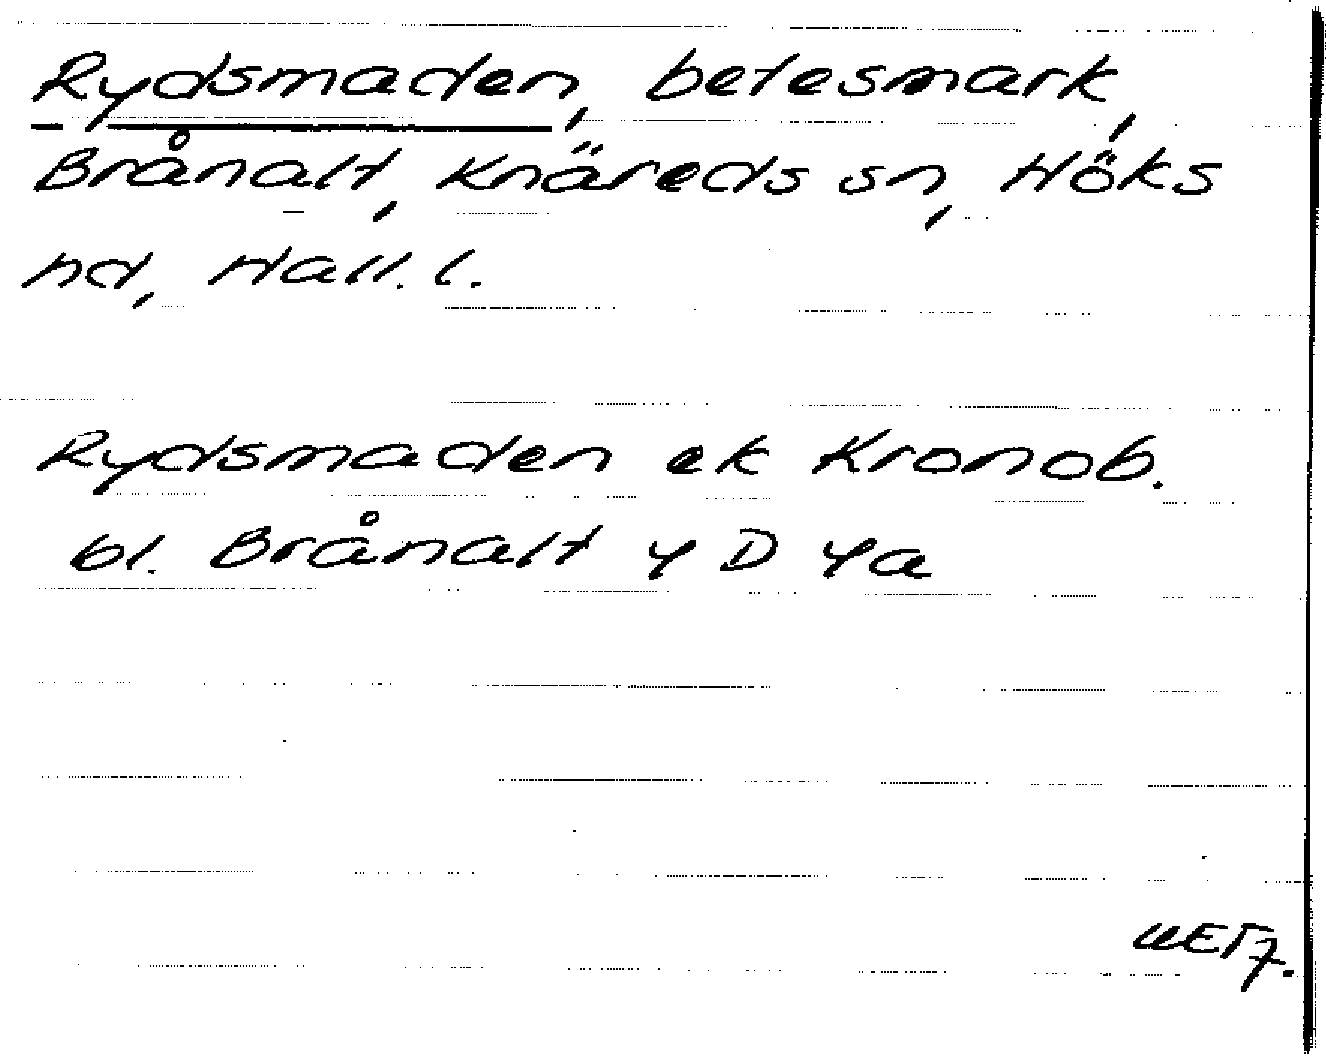 Rydsmaden, betesmark,
Brånalt, Knäreds sn, Höks
hd, Hall. l.
Rydsmaden ek Kronob.
bl. Brånalt 4 D 4a